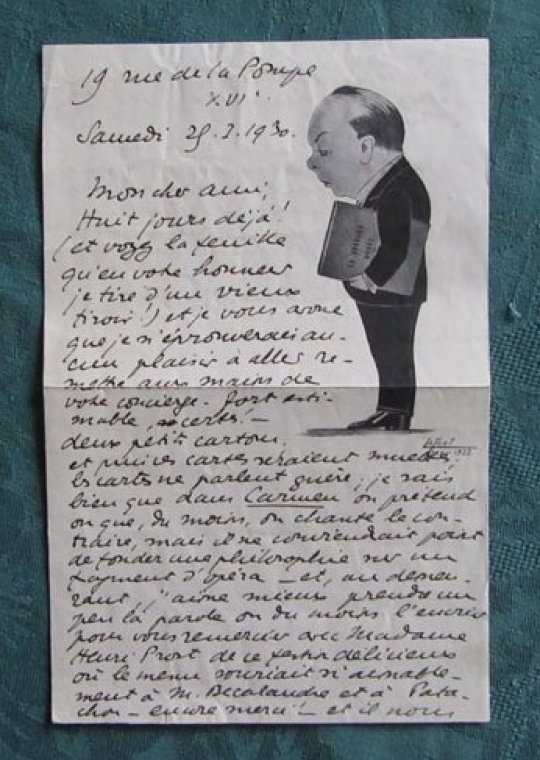 19 rue de la Pompe
XVIe
Samedi 25.1.1930.
Mon cher ami,
Huit jours déjà!
(et voyez la feuille
qu'en votre honneur
je tire d'un vieux
tiroir!) et je vous avoue
que je n'éprouverai au-
cun plaisir à aller re-
mettre aux mains de
votre concierge - fort esti-
mable, certes! -
deux petits cartons.
et puis ces cartes seraient muettes.
les cartes ne parlent guère; je sais
bien que dans Carmen on prétend
ou que, du moins, on chante le con-
traire, mais il ne conviendrait point
de fonder une philosophie sur un
fragment d'opéra - et, au demeu-
rant, j'aime mieux prendre un
peu la parole ou du moins l'encrier
pour vous remercier avec Madame
Henri Prost de ce festin délicieux
où le menu souriait si aimable-
ment à M. et à Pata-
chon - encore merci! - et il nous